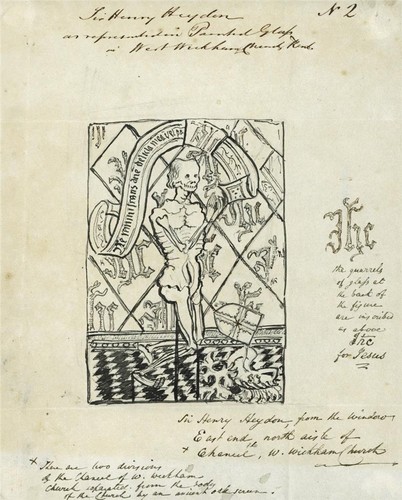 Sir Henry Heydon
N 2
as represented in Painted Glass
in West Wickham Church, Kent.
Ne reminiscaris dne delicta nea
Ihc
the quarrels
of glass at
the back of
the figure
are inscribed
as above
Ihc
for Jesus
Sir Henry Heydon, from the Window
East end, north aisle of
+ Chancel, W. Wickham Church
+ There are two divisions
of the Chancel of W. Wickham
Church separated from the body
of the Church by an ancient oak screen.